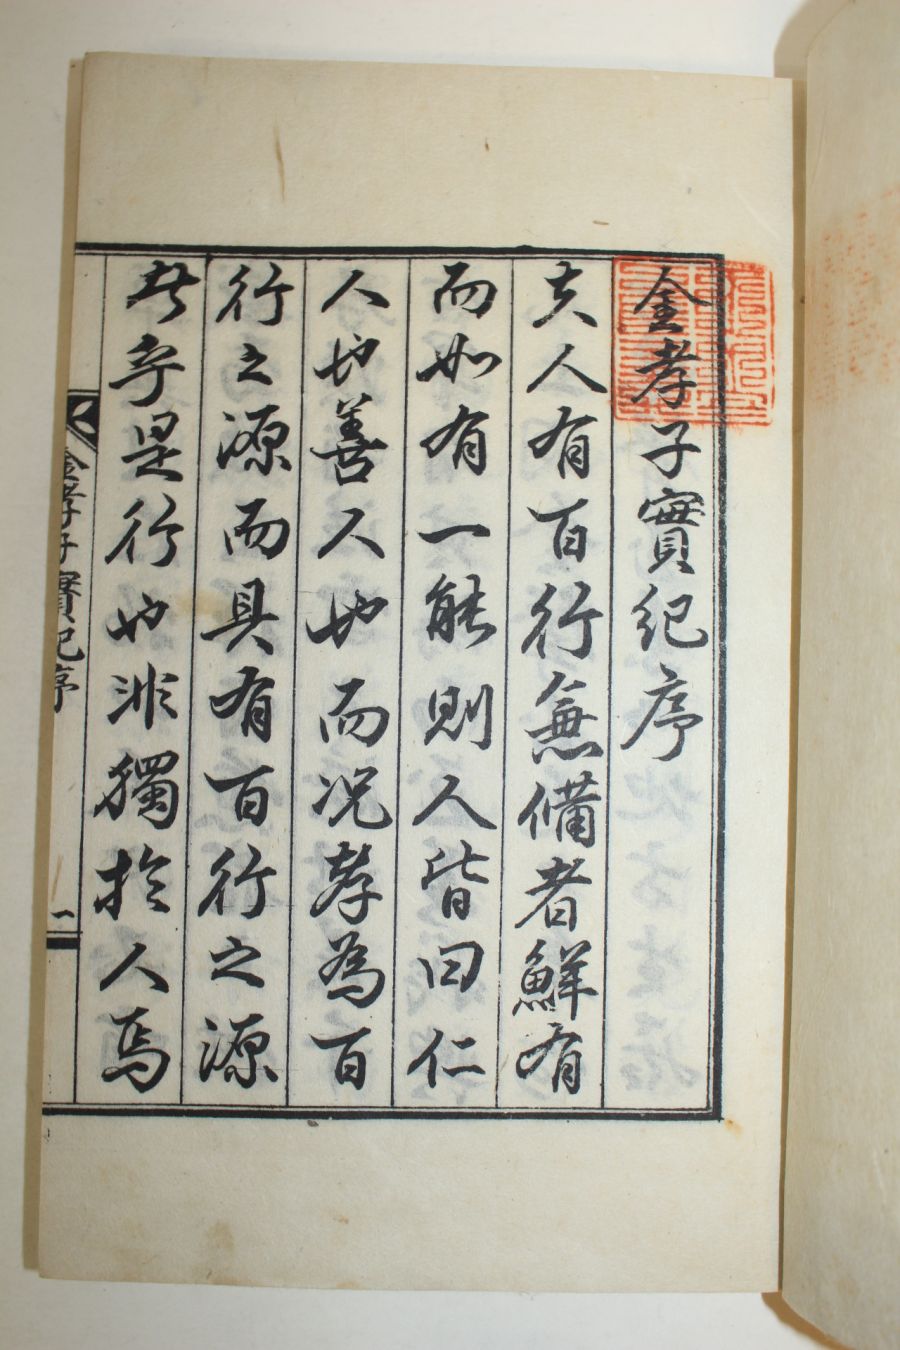 金孝子實紀序
夫人有百行無備者鮮有
而如有一能則人皆曰仁
人也善人也而况孝為百
行之源而具有百行之源
者乎是行也非獨於人焉
金孝子實紀序
一